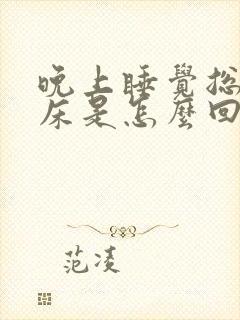 晚上睡覺總
床是怎麼回
范凌